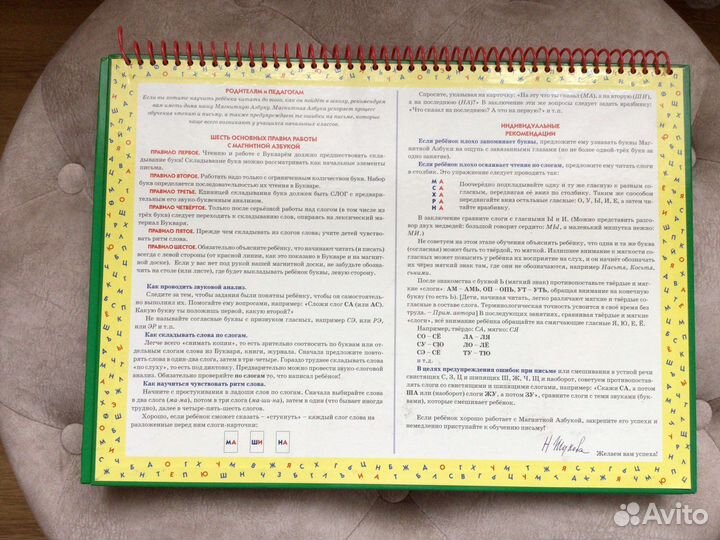 РОДИТЕЛЯМ И ПЕДАГОГАМ
Если вы хотите научить ребёнка читать до того, как он пойдёт в школу, рекомендуем
вам иметь дома нашу Магнитную Азбуку. Магнитная Азбука ускоряет процесс
обучения чтению и письму, а также предупреждает те ошибки на письме, которые
чаще всего возникают у учащихся начальных классов.
ШЕСТЬ ОСНОВНЫХ ПРАВИЛ РАБОТЫ
С МАГНИТНОЙ АЗБУКОЙ
ПРАВИЛО ПЕРВОЕ. Чтению и работе с Букварём должно предшествовать скла-
дывание букв! Складывание букв можно рассматривать как начальные элементы
письма.
ПРАВИЛО ВТОРОЕ. Работать надо только с ограниченным количеством букв. Набор
букв определяется последовательностью их чтения в Букваре.
ПРАВИЛО ТРЕТЬЕ. Единицей складывания букв должен быть СЛОГ с предвари-
тельным его звуко-буквенным анализом.
ПРАВИЛО ЧЕТВЁРТОЕ. Только после серьёзной работы над слогом (в том числе из
трёх букв) следует переходить к складыванию слов, опираясь на лексический ма-
териал Букваря.
ПРАВИЛО ПЯТОЕ. Прежде чем складывать из слогов слова; учите детей чувство-
вать ритм слова.
ПРАВИЛО ШЕСТОЕ. Обязательно объясните ребёнку, что начинают читать (и писать)
всегда с левой стороны (от красной линии, как это показано в Букваре и на магнит-
ной доске). Если у вас нет под рукой нашей магнитной доски, не забудьте обозна-
чить на столе (или листе), где будет выкладывать ребёнок буквы, левую сторону.
Как проводить звуковой анализ.
Следите за тем, чтобы задания были понятны ребёнку, чтобы он самостоятель-
но выполнял их. Помогайте ему вопросами, например: «Сложи слог СА (или АС).
Какую букву ты положишь первой, какую второй?»
Не называйте согласные буквы с призвуком гласных, например СЭ, или РЭ,
или ЭР и т.п.
Как складывать слова по слогам.
Легче всего «снимать копии», то есть зрительно соотносить по буквам или от-
дельным слогам слова из Букваря, книги, журнала. Сначала предложите повто-
рять слова в один-два слога, затем в три-четыре. Гораздо труднее складывать слова
«по слуху», то есть под диктовку. Предварительно можно провести звуко-слоговой
анализ. Обязательно проверьте по слогам то, что написал ребёнок!
Как научиться чувствовать ритм слова.
Начните с простукивания в ладоши слов по слогам. Сначала выбирайте слова
в два слога (ма-ма), потом в три слога (ма-ши-на), затем в один (что бывает иногда
трудно), далее в четыре-пять-шесть слогов.
Хорошо, если ребёнок сможет связать – «стукнуть» – каждый слог слова на
разложенные перед ним слоги-карточки:
МА ШИ НА
Спросите, указывая на карточку: «На эту что ты сказал (МА), а на вторую (ШИ),
а на последнюю (НА)?» В заключение эти же вопросы следует задать вразбивку:
«Что сказал на последнюю? А что на первую?» и т.п.
ИНДИВИДУАЛЬНЫЕ
РЕКОМЕНДАЦИИ
Если ребёнок плохо запоминает буквы, предложите ему узнавать буквы Маг-
нитной Азбуки на ощупь с завязанными глазами (но не более одной-трёх букв за
одно занятие).
Если ребёнок плохо осваивает чтение по слогам, предложите ему читать слоги
в столбик. Это упражнение следует проводить так:
М А
С
Х
Р
Н
Поочерёдно подкладывайте одну и ту же гласную к разным со-
гласным, передвигая её вниз по столбику. Таким же способом
передвигайте вниз остальные гласные: О, У, Ы, И, Е, а затем чи-
тайте вразбивку.
В заключение сравните слоги с гласными Ы и И. (Можно представить разго-
вор двух медведей: большой говорит сердито: МЫ, а маленький мишутка нежно:
МИ.)
Не советуем на этом этапе обучения объяснять ребёнку, что одна и та же буква
(согласная) может быть то твёрдой, то мягкой. Излишнее внимание к мягкости со-
гласных может повысить у ребёнка их восприятие на слух, и он начнёт обозначать
их через мягкий знак там, где они не обозначаются, например Насьтя, Косьтя,
сьними.
После знакомства с буквой Ь (мягкий знак) противопоставьте твёрдые и мяг-
кие «слоги»: АМ – АМЬ, ОП – ОПЬ, УТ – УТЬ, обращая внимание на конечную
букву (то есть Ь). [Дети, начиная читать, легко различают мягкие и твёрдые со-
гласные в составе слога. Терминологическая точность усвоится в своё время без
труда. – Прим. автора] В последующих занятиях, сравнивая твёрдые и мягкие
«слоги», всё внимание ребёнка обращайте на смягчающие гласные Я, Ю, Е, Ё.
Например, твёрдо: СА, мягко: СЯ
СО – СЁ ЛА – ЛЯ
СУ – СЮ ЛО – ЛЁ
СЭ – СЕ ТУ – ТЮ
и т.д.
В целях предупреждения ошибок при письме или смешения в устной речи
свистящих С, З, Ц и шипящих Ш, Ж, Ч, Щ и наоборот, советуем противопостав-
лять слоги со свистящими и шипящими слогами, например: «Скажи СА, а потом
ША или (наоборот) слоги ЖУ, а потом ЗУ», сравните слоги с теми звуками (бук-
вами), которые смешивает ребёнок.
Если ребёнок хорошо работает с Магнитной Азбукой, закрепите его успехи и
немедленно приступайте к обучению письму!
Н. Жукова
Желаем вам успеха!
Avito